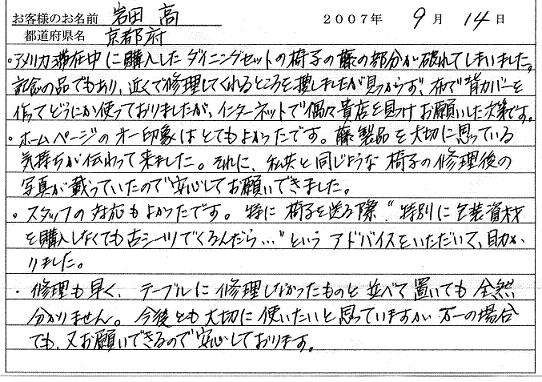 お客様のお名前 岩田 高 2007年 9月 14日
都道府県名 京都府
・アメリカ滞在中に購入したダイニングセットの椅子の藤の部分が破れてしまいました。
記念の品でもあり、近くで修理してくれるところを捜しましたが見つからず、布で背カバーを
作ってどうにか使っておりましたが、インターネットで偶々貴店を見つけお願いした次第です。
・ホームページの第一印象はとてもよかったです。藤製品を大切に思っている
気持ちが伝わって来ました。それに、私共と同じような椅子の修理後の
写真が載っていたので安心してお願いできました。
・スタッフの対応もよかったです。特に椅子を送る際、"特別に包装資材
を購入しなくても古シーツでくるんだら…"というアドバイスをいただいて、助か
りました。
・修理も早く、テーブルに修理しなかったものと並べて置いても全然
分かりません。今後とも大切に使いたいと思っていますが、万一の場合
でも、又お願いできるので安心しております。